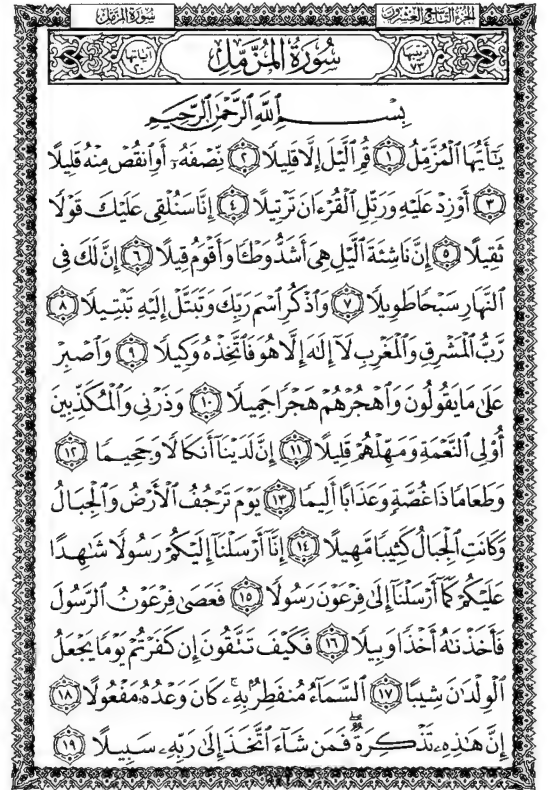 سُورَةُ المُزَّمِّل الجُزْءُ التَّاسِعُ وَالعِشْرُونَ
ترتيبها ٧٣ سُورَةُ المُزَّمِّلِ آياتها ٢٠
بِسْمِ ٱللَّهِ ٱلرَّحْمَٰنِ ٱلرَّحِيمِ
يَٰٓأَيُّهَا ٱلْمُزَّمِّلُ ١ قُمِ ٱلَّيْلَ إِلَّا قَلِيلًا ٢ نِّصْفَهُۥٓ أَوِ ٱنقُصْ مِنْهُ قَلِيلًا
٣ أَوْ زِدْ عَلَيْهِ وَرَتِّلِ ٱلْقُرْءَانَ تَرْتِيلًا ٤ إِنَّا سَنُلْقِى عَلَيْكَ قَوْلًا
ثَقِيلًا ٥ إِنَّ نَاشِئَةَ ٱلَّيْلِ هِىَ أَشَدُّ وَطْـًٔا وَأَقْوَمُ قِيلًا ٦ إِنَّ لَكَ فِى
ٱلنَّهَارِ سَبْحًا طَوِيلًا ٧ وَٱذْكُرِ ٱسْمَ رَبِّكَ وَتَبَتَّلْ إِلَيْهِ تَبْتِيلًا ٨
رَّبُّ ٱلْمَشْرِقِ وَٱلْمَغْرِبِ لَآ إِلَٰهَ إِلَّا هُوَ فَٱتَّخِذْهُ وَكِيلًا ٩ وَٱصْبِرْ
عَلَىٰ مَا يَقُولُونَ وَٱهْجُرْهُمْ هَجْرًا جَمِيلًا ١٠ وَذَرْنِى وَٱلْمُكَذِّبِينَ
أُو۟لِى ٱلنَّعْمَةِ وَمَهِّلْهُمْ قَلِيلًا ١١ إِنَّ لَدَيْنَآ أَنكَالًا وَجَحِيمًا ١٢
وَطَعَامًا ذَا غُصَّةٍ وَعَذَابًا أَلِيمًا ١٣ يَوْمَ تَرْجُفُ ٱلْأَرْضُ وَٱلْجِبَالُ
وَكَانَتِ ٱلْجِبَالُ كَثِيبًا مَّهِيلًا ١٤ إِنَّآ أَرْسَلْنَآ إِلَيْكُمْ رَسُولًا شَٰهِدًا
عَلَيْكُمْ كَمَآ أَرْسَلْنَآ إِلَىٰ فِرْعَوْنَ رَسُولًا ١٥ فَعَصَىٰ فِرْعَوْنُ ٱلرَّسُولَ
فَأَخَذْنَٰهُ أَخْذًا وَبِيلًا ١٦ فَكَيْفَ تَتَّقُونَ إِن كَفَرْتُمْ يَوْمًا يَجْعَلُ
ٱلْوِلْدَٰنَ شِيبًا ١٧ ٱلسَّمَآءُ مُنفَطِرٌۢ بِهِۦ ۚ كَانَ وَعْدُهُۥ مَفْعُولًا ١٨
إِنَّ هَٰذِهِۦ تَذْكِرَةٌ ۖ فَمَن شَآءَ ٱتَّخَذَ إِلَىٰ رَبِّهِۦ سَبِيلًا ١٩